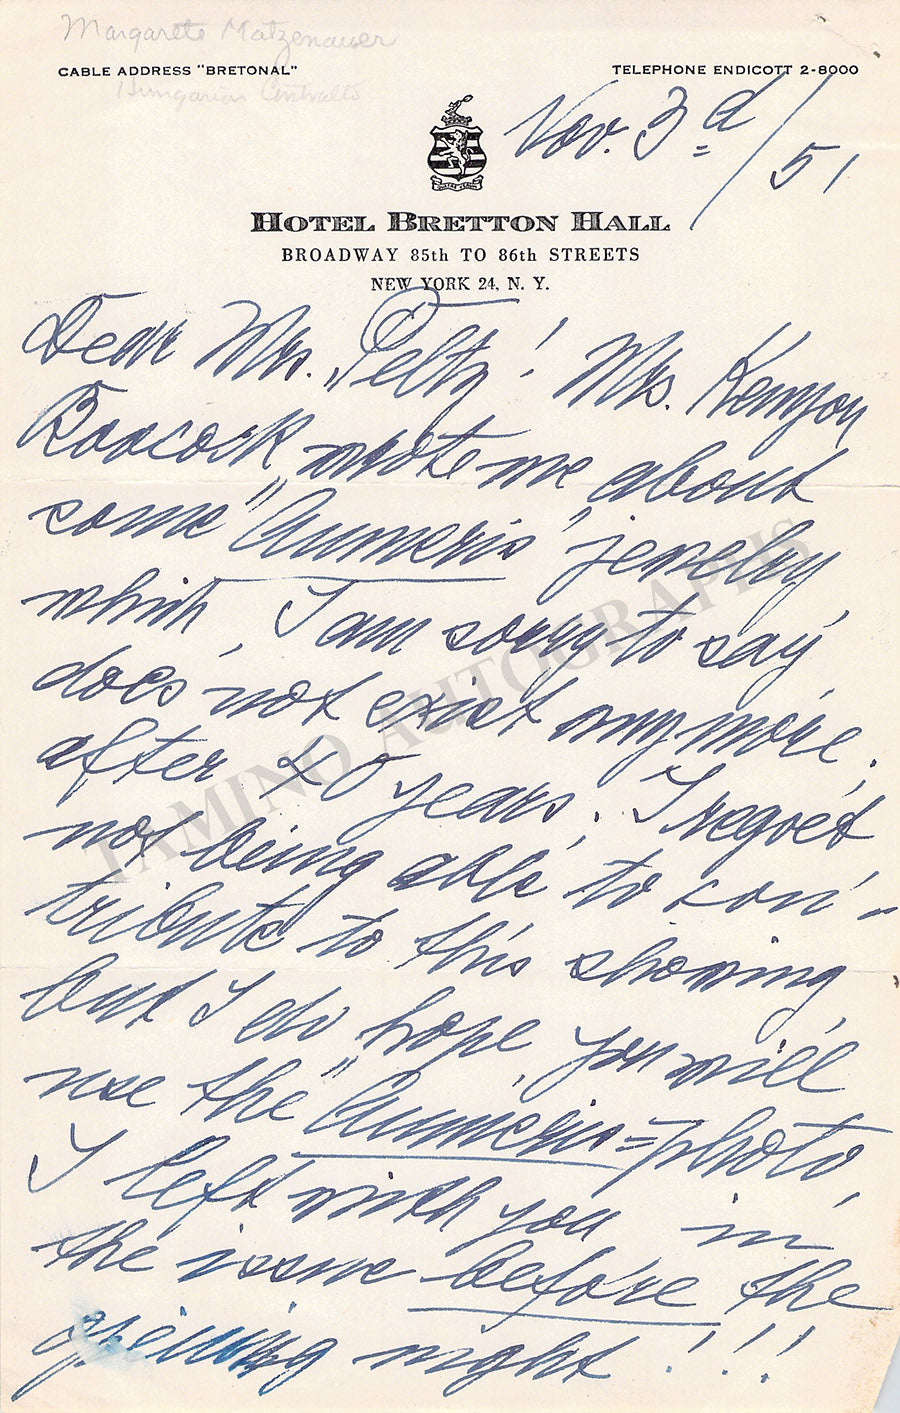 Margarete Matzenauer
CABLE ADDRESS "BRETONAL"
Hungarian Contralto
TELEPHONE ENDICOTT 2-8000
Nov. 3d/51
HOTEL BRETTON HALL
BROADWAY 85th TO 86th STREETS
NEW YORK 24, N. Y.
Dear Mrs. Peltz! Mrs. Kenyon
Boocock wrote me about
some "Amneris" jewelry,
which, I am sorry to say
does not exist anymore,
after 20 years. I regret
not being able to con-
tribute to this showing,
but I do hope, you will
use the "Amneris=photo,
I left with you in
the issue before the
opening night!!!
TAMINO AUTOGRAPHS